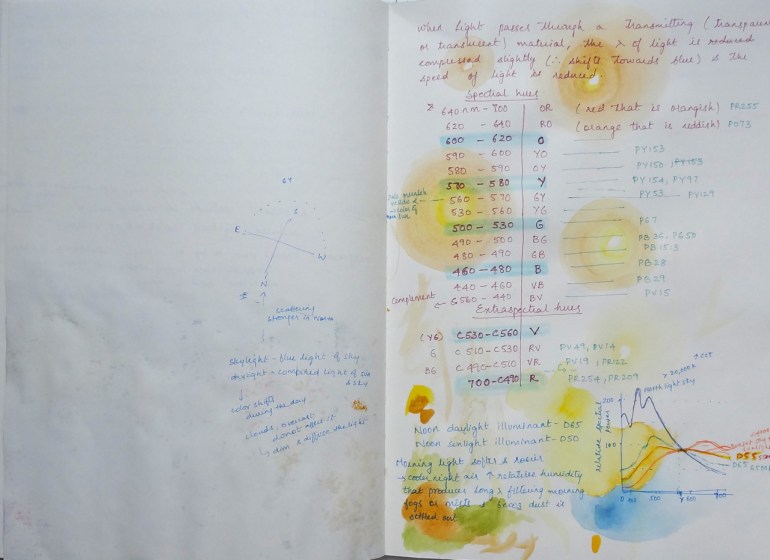 S
E
W
N
scattering
stronger in
skylight - blue light of sky
daylight - combined light of
& sky
color shifts
during the day
clouds, overcast
do not affect it
dim & diffuse the light
When light passes through a transmitting (transparent
or translucent) material, the λ of light is reduced
compressed slightly (∴ shifts towards blue) & the
speed of light is reduced.
Spectral hues
640 nm - 700 OR (red that is orangish) PR255
620 - 640 RO (orange that is reddish) PO73
600 - 620 O
590 - 600 YO PY153
580 - 590 OY
570 - 580 Y PY154, PY97
560 - 570 GY PY129
530 - 560 YG
500 - 530 G PG7
490 - 500 BG PB36, PG50
480 - 490 GB PB15:3
460 - 480 B PB28
440 - 460 VB PB29
Complement 560 - 440 BV PV15
Extraspectral hues
(YG) C530 - C560 V
G C510 - C530 RV PV49, PV14
BG C490 - C510 VR PV19, PR122
700 - C490 R PR254, PR209
Noon daylight illuminant - D65
Noon sunlight illuminant - D50
Morning light softer & rosier
→ cooler night air ↑ relative humidity
that produces long λ filtering morning
fogs or mists & dust is
settled out.
↑ CCT
> 20,000 K
north light sky
relative spectral
power
200
100
D55
D65
500
700